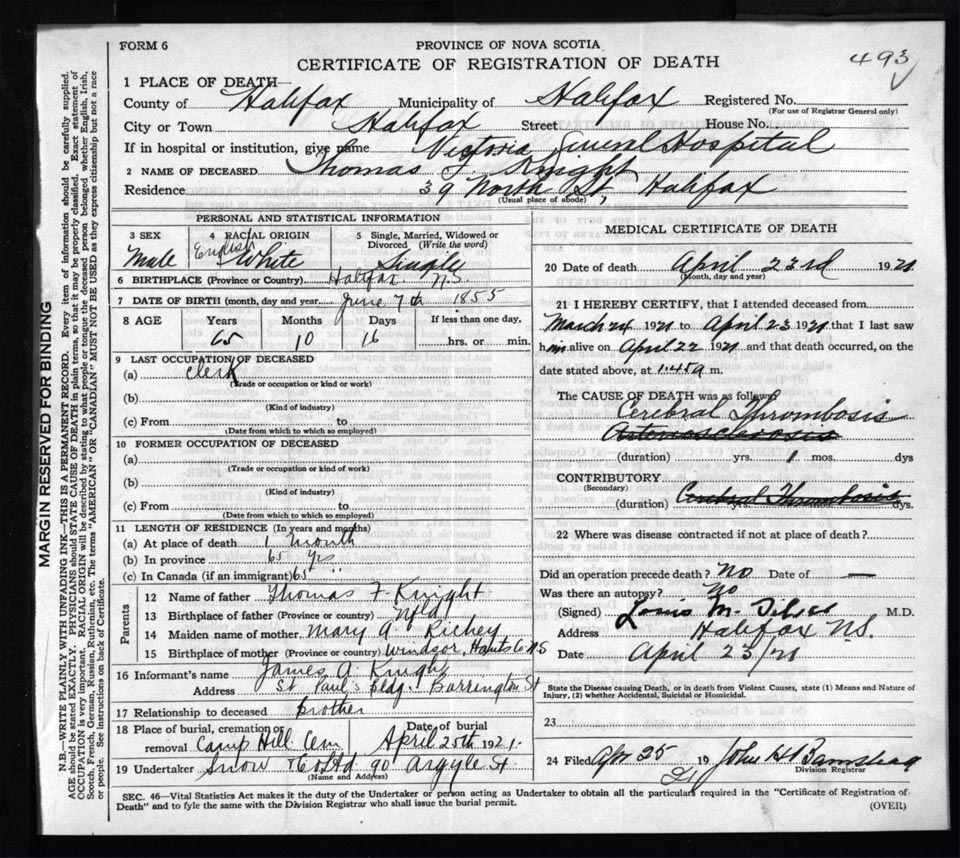 FORM 6
PROVINCE OF NOVA SCOTIA
CERTIFICATE OF REGISTRATION OF DEATH
493
1 PLACE OF DEATH
County of Halifax Municipality of Halifax Registered No.
(For use of Registrar General only)
City or Town Halifax Street House No.
If in hospital or institution, give name Victoria General Hospital
2 NAME OF DECEASED Thomas F Knight
Residence 39 North St, Halifax
(Usual place of abode)
PERSONAL AND STATISTICAL INFORMATION
3 SEX 4 RACIAL ORIGIN 5 Single, Married, Widowed or Divorced (Write the word)
Male English White Single
6 BIRTHPLACE (Province or Country) Halifax N.S.
7 DATE OF BIRTH (month, day and year) June 7th 1855
8 AGE Years Months Days If less than one day,
65 10 16 hrs. or min.
9 LAST OCCUPATION OF DECEASED
(a) Clerk
(Trade or occupation or kind or work)
(b)
(Kind of industry)
(c) From to
(Date from which to which so employed)
10 FORMER OCCUPATION OF DECEASED
(a)
(Trade or occupation or kind of work)
(b)
(Kind of industry)
(c) From to
(Date from which to which so employed)
11 LENGTH OF RESIDENCE (In years and months)
(a) At place of death 1 month
(b) In province 65 yrs
(c) In Canada (if an immigrant) 65 "
Parents
12 Name of father Thomas F Knight
13 Birthplace of father (Province or country) Nfld
14 Maiden name of mother Mary A. Richey
15 Birthplace of mother (Province or country) Windsor, Hants Co NS
16 Informant's name James A. Knight
Address St Paul's Bldg. Barrington St
17 Relationship to deceased brother
18 Place of burial, cremation or removal Camp Hill Cem Date of burial April 25th 1921.
19 Undertaker Snow & Co Ltd 90 Argyle St
(Name and Address)
MEDICAL CERTIFICATE OF DEATH
20 Date of death April 23rd 1921
(Month, day and year)
21 I HEREBY CERTIFY, that I attended deceased from
March 24 1921 to April 23 1921 that I last saw
him alive on April 22 1921 and that death occurred, on the
date stated above, at 1.45 a m.
The CAUSE OF DEATH was as follows
Cerebral Thrombosis
Arteriosclerosis
(duration) yrs. 1 mos. dys
CONTRIBUTORY
(Secondary)
Cerebral Thrombosis
(duration) yrs. mos. dys.
22 Where was disease contracted if not at place of death?
Did an operation precede death? No Date of —
Was there an autopsy? No
(Signed) Louis M. M.D.
Address Halifax NS.
Date April 23/21
State the Disease causing Death, or in death from Violent Causes, state (1) Means and Nature of
Injury, (2) whether Accidental, Suicidal or Homicidal.
23
24 Filed Apr 25 1921 John H Barnstead
Division Registrar
SEC. 46—Vital Statistics Act makes it the duty of the Undertaker or person acting as Undertaker to obtain all the particulars required in the "Certificate of Registration of
Death" and to fyle the same with the Division Registrar who shall issue the burial permit.
(OVER)
MARGIN RESERVED FOR BINDING
N.B.—WRITE PLAINLY WITH UNFADING INK—THIS IS A PERMANENT RECORD. Every item of information should be carefully supplied.
AGE should be stated EXACTLY. PHYSICIANS should STATE CAUSE OF DEATH in plain terms, so that it may be properly classified. Exact statement of
OCCUPATION is very important. RACIAL ORIGIN will be described by stating to what people or tongue the deceased person belonged whether English, Irish,
Scotch, French, German, Russian, Ruthenian, etc. The terms "AMERICAN" OR "CANADIAN" MUST NOT BE USED as they express citizenship but not a race
or people. See instructions on back of Certificate.